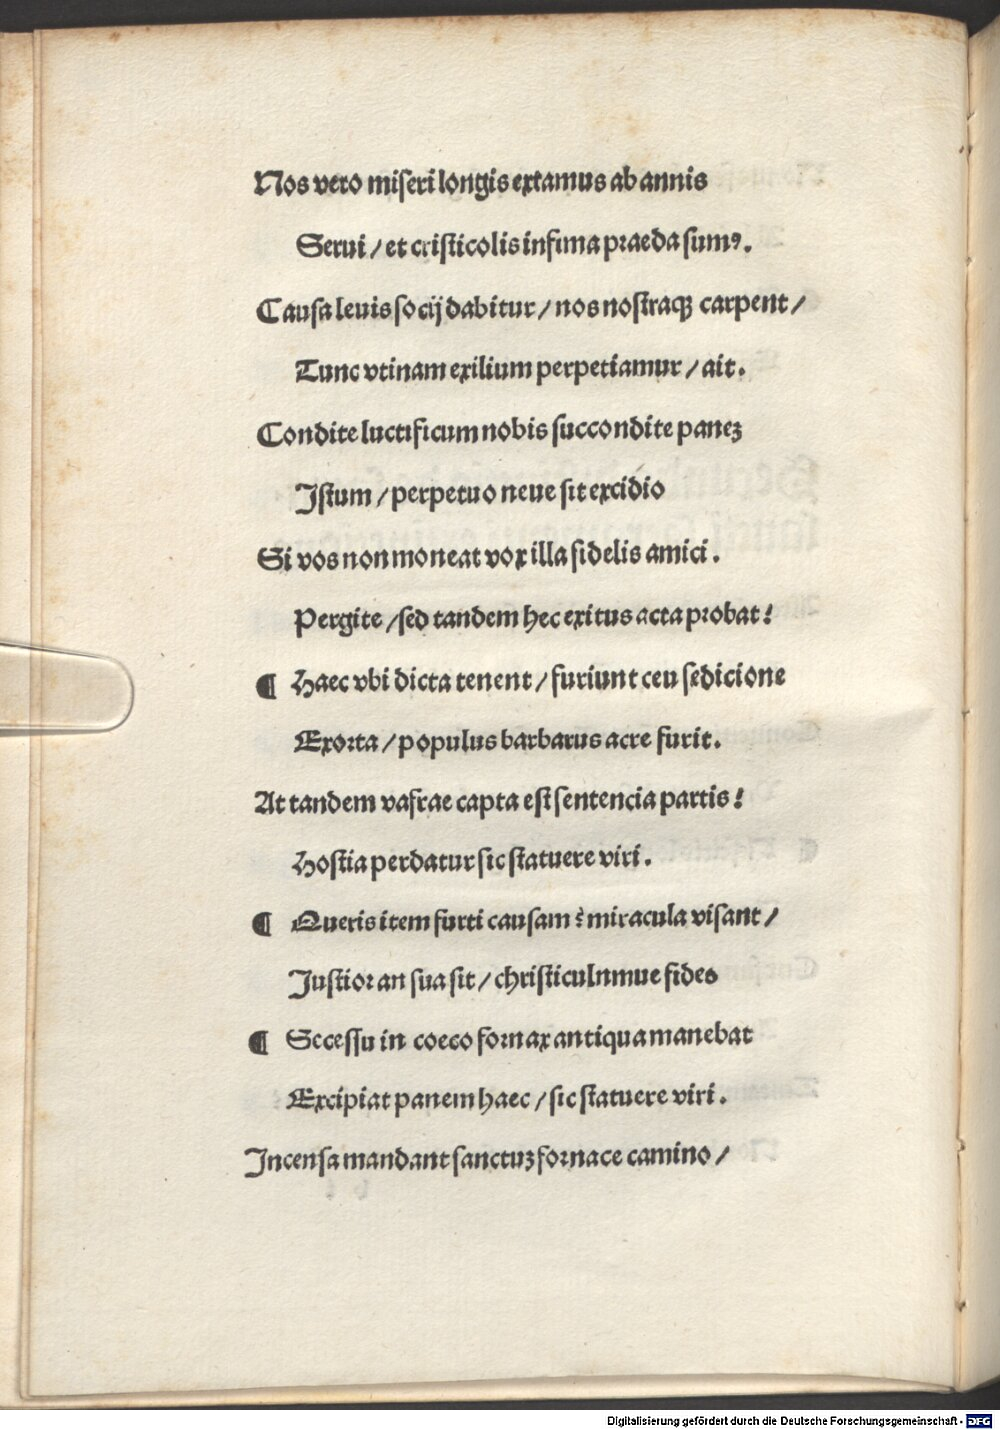 Nos vero miseri longis extamus ab annis
Serui / et cristicolis infima praeda sumꝰ.
Causa leuis socij dabitur / nos nostraqꝫ carpent /
Tunc vtinam exilium perpetiamur / ait.
Condite luctificum nobis succondite paneꝫ
Istum / perpetuo neue sit excidio
Si vos non moneat vox illa fidelis amici.
Pergite / sed tandem hec exitus acta probat!
¶ Haec vbi dicta tenent / furiunt ceu sedicione
Exorta / populus barbarus acre furit.
At tandem vafrae capta est sentencia partis!
Hostia perdatur sic statuere viri.
¶ Queris item furti causam: miracula visant /
Justior an sua sit / christiculnmue fides
¶ Secessu in coeco fornax antiqua manebat
Excipiat panem haec / sic statuere viri.
Incensa mandant sanctuꝫ fornace camino /
Digitalisierung gefördert durch die Deutsche Forschungsgemeinschaft - DFG